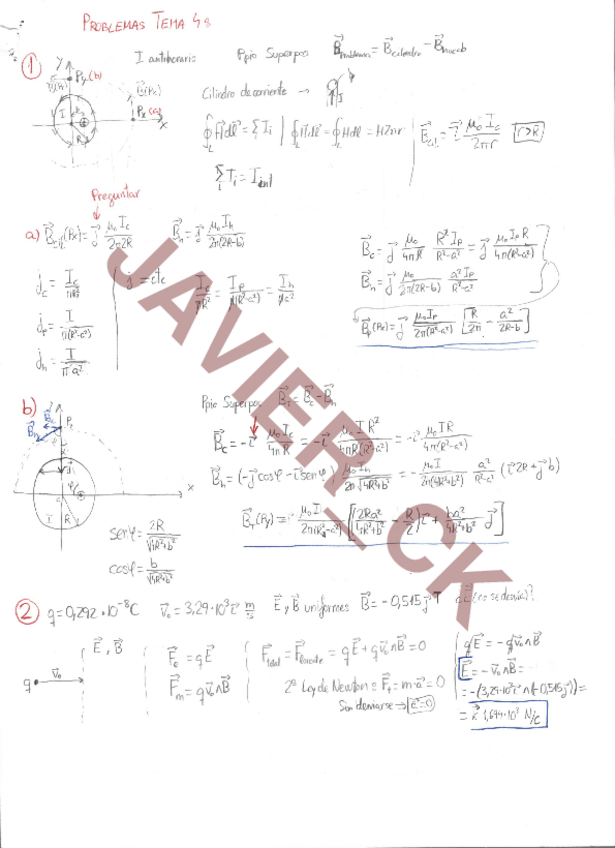 PROBLEMAS TEMA 4 8
1 I antihorario Ppio Superpos B⃗problema = B⃗cilindro − B⃗hueco
Cilindro de corriente →
∮H⃗dl⃗ = ΣIi | ∮H⃗dl⃗ = ∮Hdl = H2πr
ΣIi = Iint
μ₀ Ic / 2πr r>R
Preguntar
a) B⃗cil(Px) = j⃗ μ₀Ic / 2π2R B⃗h = j⃗ μ₀Ih / 2π(2R-b)
jc = Ic / πR² j = cte Ic / πR² = Ip / π(R²-a²) = Ih / πa²
jp = I / π(R²-a²)
jh = I / πa²
B⃗c = j⃗ μ₀/4πR R²Ip/R²-a² = j⃗ μ₀IpR / 4π(R²-a²)
B⃗h = j⃗ μ₀/2π(2R-b) a²Ip/R²-a²
B⃗p(Px) = j⃗ μ₀Ip / 2π(R²-a²) [R/2 − a²/2R-b]
b) Ppio Superpos B⃗T = B⃗c − B⃗h
B⃗c = −i⃗ μ₀Ic/4πR = −i⃗ μ₀IR²/4πR(R²-a²) = −i⃗ μ₀IR/4π(R²-a²)
B⃗h = (−j⃗cosφ − i⃗senφ) μ₀Ih/2π√4R²+b² = − μ₀I/2π(4R²+b²) a²/R²-a² (i⃗2R + j⃗b)
B⃗T(Py) = μ₀I/2π(R²-a²) [(2Ra²/4R²+b² − R/2) i⃗ + ba²/4R²+b² j⃗]
senφ = 2R/√4R²+b²
cosφ = b/√4R²+b²
2 q = 0,292·10⁻⁸C v⃗₀ = 3,29·10³ i⃗ m/s E⃗ y B⃗ uniformes B⃗ = −0,515 j⃗ T ¿E⃗ (no se desvía)?
E⃗, B⃗
q v⃗₀
F⃗e = qE⃗
F⃗m = qv⃗₀∧B⃗
F⃗total = = qE⃗ + qv⃗₀∧B⃗ = 0
2ª Ley de Newton = F⃗t = m·a⃗ = 0
Sin desviarse →
qE⃗ = −qv⃗₀∧B⃗
E⃗ = −v⃗₀∧B⃗ =
= −(3,29·10³ i⃗ ∧ (−0,515 j⃗)) =
= k⃗ 1,694·10³ N/C
JAVIER_CK